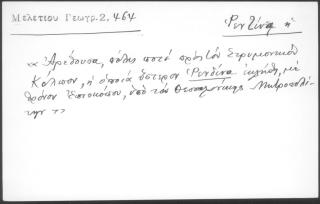 Μελετίου Γεωγρ. 2, 464
Ρεντίνα ἡ
«Ἀρέθουσα, πόλις ποτὲ πρὸς τὸν Στρυμονικὸν
Κόλπον, ἡ ὁποία ὕστερον Ῥενδίνα ἐκλήθη, μὲ
θρόνον Ἐπισκόπου, ὑπὸ τὸν Θεσσαλονίκης Μητροπολί-
την»